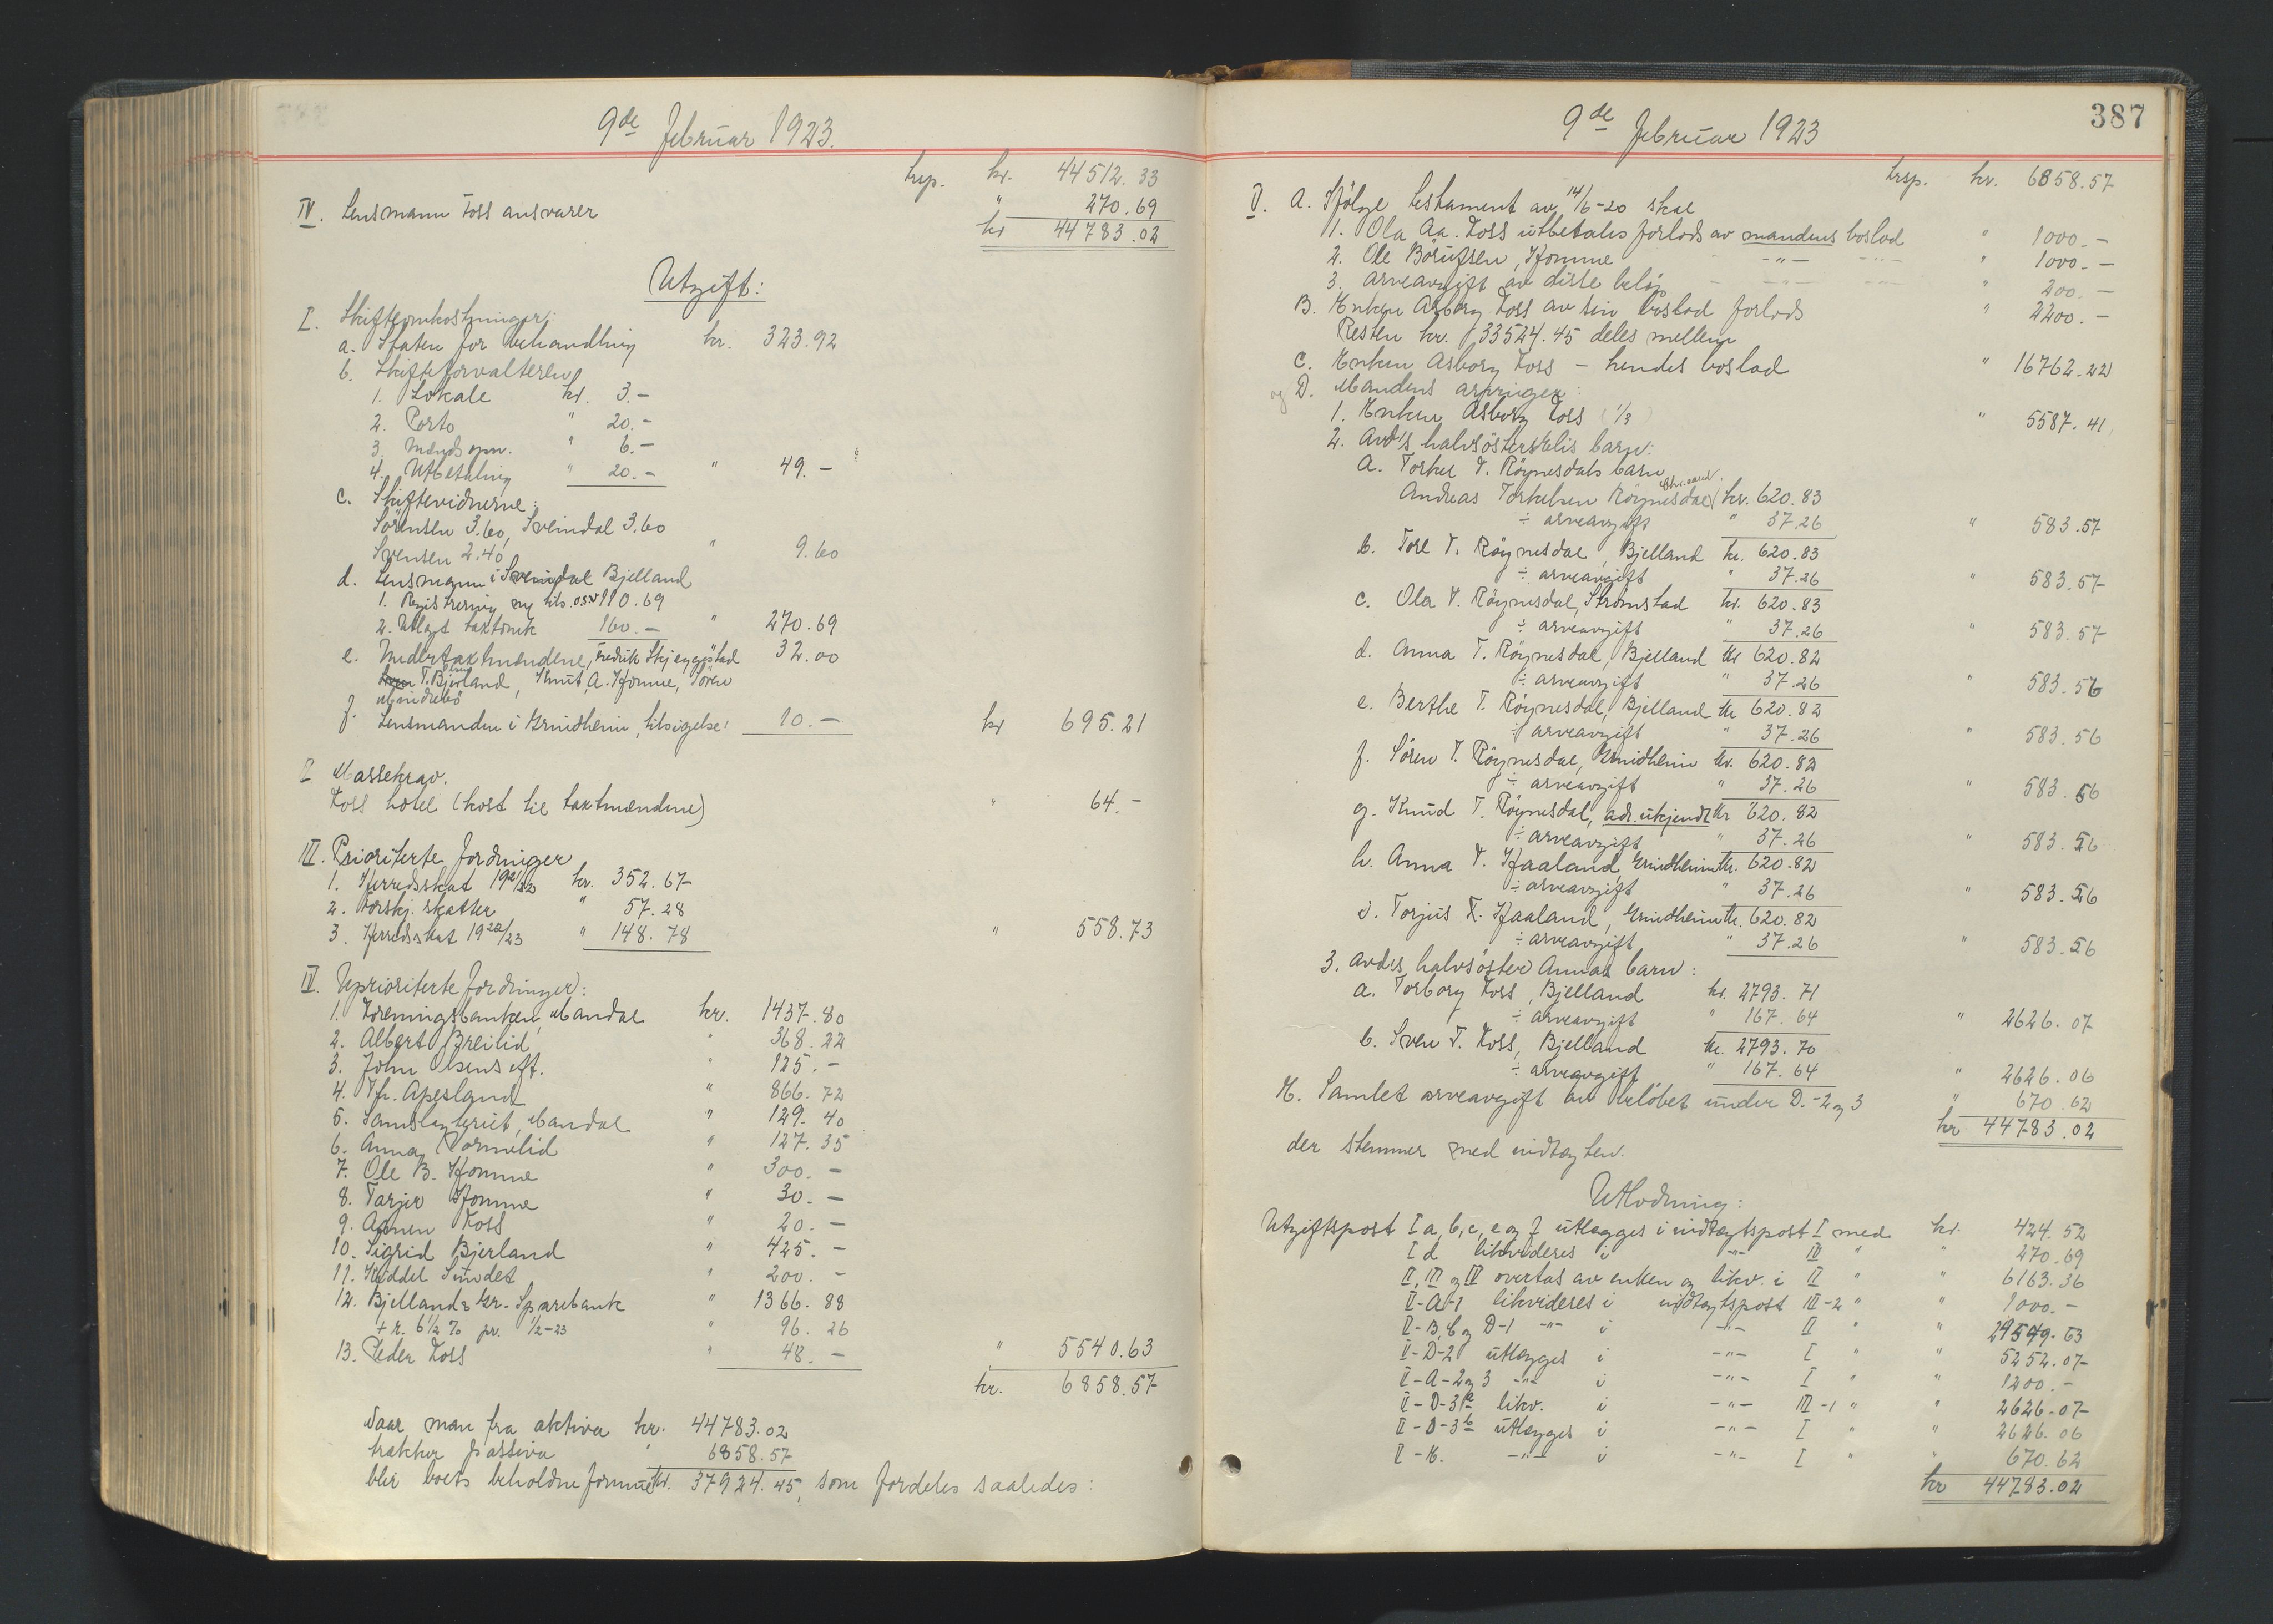 9de Februar 1923.
trsp. kr. 44512.33
IV. Lensmann Foss ansvarer " 270.69
kr 44783.02
Utgift:
I. Skifteomkostninger:
a. Staten for behandling kr. 323.92
b. Skifteforvalteren
1. Lokale kr. 3.-
2. Porto " 20.-
3. " 6.-
4. Utbetaling " 20.- " 49.-
c. Skiftevidnerne:
Sörensen 3.60, Sveindal 3.60
Svensen 2.40 " 9.60
d. Lensmann i Bjelland
1. Registrering og tils. osv 110.69
2. Utlagt 160.- " 270.69
e. Undertaxtmændene, Fredrik Skjeggestad 32.00
T. Bjerland, Knut A. Homme, Sören
f. Lensmanden i Grindheim, tilsigelse: 10.- kr 695.21
II Massekrav.
Foss hotel (kost til taxtmændene) " 64.-
III. Prioriterte fordringer
1. Herredsskat 1921/22 kr. 352.67
2. Forskj. skatter " 57.28
3. Herredsskat 1922/23 " 148.78 " 558.73
IV. Uprioriterte fordringer:
1. Foreningsbanken, Mandal kr. 1437.80
2. Albert Breilid " 368.22
3. John Olsens eft. " 125.-
4. Apesland " 866.72
5. Samslagteriet, Mandal " 129.40
6. Anna " 127.35
7. Ole B. Homme " 300.-
8. Tarjer Homme " 30.-
9. Foss " 20.-
10. Sigrid Bjerland " 425.-
11. Sundet " 200.-
12. Bjelland & Gr. Sparebank " 1366.88
+ r. 6½ % pr. ½-23 " 96.26
13. Peder Foss " 48.- " 5540.63
kr. 6858.57
Naar man fra aktiva kr. 44783.02
trækker passiva " 6858.57
blir boets beholdne formue kr. 37924.45, som fordeles saaledes:
387
9de Februar 1923
trsp. kr. 6858.57
V. A. Ifölge testament av 14/6-20 skal
1. Ola Aa. Foss utbetales forlods av mandens boslod " 1000.-
2. Ole Börufsen, Homme -"- -"- " 1000.-
3. arveavgift av disse belöp - -"- " 200.-
B. Enken Asborg Foss av sin boslod forlods " 2200.-
Resten kr. 33524.45 deles mellem
C. Enken Asborg Foss - hendes boslod " 16762.22
og D. Mandens arvinger:
1. Enken Asborg Foss (1/3) " 5587.41
2. Avd's halvsöster barn:
a. Torkel T. Röynesdals barn
Andreas Torkelsen Röynesdal kr. 620.83
÷ arveavgift " 37.26 " 583.57
b. Tore T. Röynesdal, Bjelland kr. 620.83
÷ arveavgift " 37.26 " 583.57
c. Ola T. Röynesdal, Strömstad kr. 620.83
÷ arveavgift " 37.26 " 583.57
d. Anna T. Röynesdal, Bjelland kr 620.82
÷ arveavgift " 37.26 " 583.56
e. Berthe T. Röynesdal, Bjelland kr 620.82
÷ arveavgift " 37.26 " 583.56
f. Sören T. Röynesdal, Grindheim kr. 620.82
÷ arveavgift " 37.26 " 583.56
g. Knud T. Röynesdal, adr. ukjendt kr 620.82
÷ arveavgift " 37.26 " 583.56
h. Anna T. Haaland, Grindheim kr. 620.82
÷ arveavgift " 37.26 " 583.56
i. Torjus T. Haaland, Grindheim kr. 620.82
÷ arveavgift " 37.26 " 583.56
3. Avd's halvsöster Annas barn:
a. Torborg Foss, Bjelland kr. 2793.71
÷ arveavgift " 167.64 " 2626.07
b. Sven T. Foss, Bjelland kr. 2793.70
÷ arveavgift " 167.64 " 2626.06
E. Samlet arveavgift av belöbet under D.-2 og 3 " 670.62
kr 44783.02
der stemmer med indtægten.
Utlodning:
Utgiftspost I a, b, c, e og f utlægges i indtægtspost I med kr. 424.52
I d likvideres i -"- IV " " 270.69
II, III og IV overtas av enken og likv. i II " " 6163.36
V-A-1 likvideres i indtægtspost III-2 " " 1000.-
V-B, C og D-1 -"- i -"- II " " 24549.63
V-D-2 utlægges i -"- I " " 5252.07
V-A-2 og 3 -"- i -"- I " " 1200.-
V-D-3a likv. i -"- III-1 " " 2626.07
V-D-3b utlægges i -"- I " " 2626.06
V-E. -"- i -"- I " " 670.62
kr 44783.02